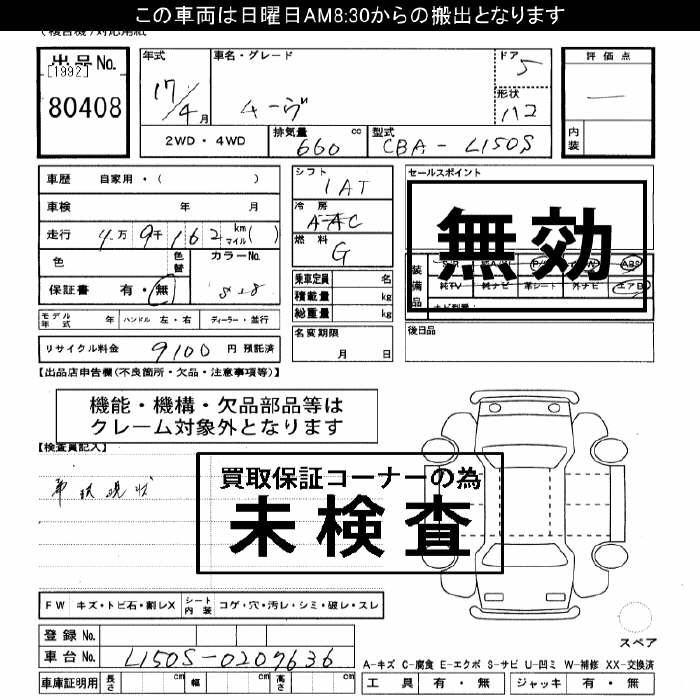 この車両は日曜日AM8:30からの搬出となります
出品No.
[1992]
80408
年式
17/4月
車名・グレード
ムーヴ
ドア
5
形状
112
評価点
—
内装
2WD・4WD
排気量
660 cc
型式
CBA-L150S
車歴 自家用・( )
車検 年 月
走行 4万9千162 km マイル( )
色
色替
カラーNo.
S28
保証書 有・無
シフト
1AT
冷房
AAC
燃料
G
乗車定員 名
積載量 kg
総重量 kg
名変期限
月 日
セールスポイント
無効
装備品
ABS
純TV 純ナビ 革シート 外ナビ エアB
後日品
モデル年式 年 ハンドル 左・右 ディーラー・並行
リサイクル料金 9100 円 預託済
【出品店申告欄(不良箇所・欠品・注意事項等)】
機能・機構・欠品部品等は
クレーム対象外となります
【検査員記入】
車状現状
買取保証コーナーの為
未検査
FW キズ・トビ石・割レX シート内装 コゲ・穴・汚レ・シミ・破レ・スレ
登録No.
車台No. L150S-0207636
車庫証明用 長さ cm 幅 cm 高さ cm
スペア
A-キズ C-腐食 E-エクボ S-サビ U-凹ミ W-補修 XX-交換済
工具 有・無 ジャッキ 有・無